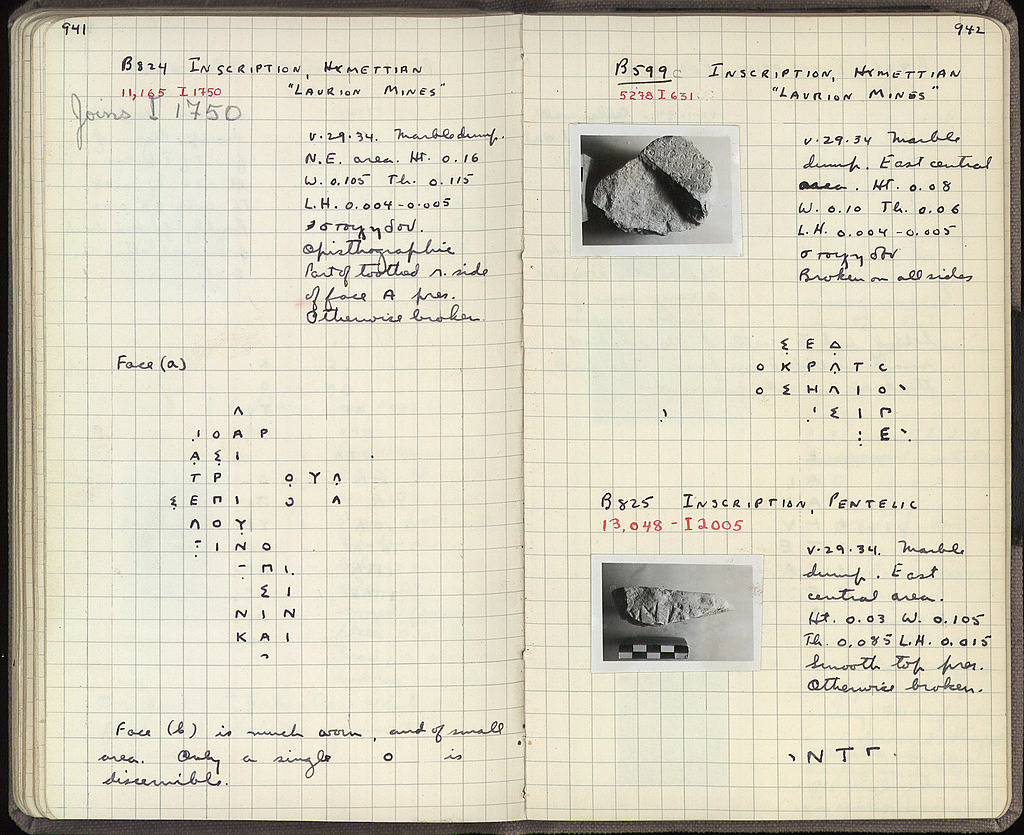 941
B824 INSCRIPTION, HYMETTIAN
11,165 I 1750 "LAURION MINES"
Joins I 1750
V.29.34. Marble dump.
N.E. area. Ht. 0.16
W. 0.105 Th. 0.115
L.H. 0.004-0.005
στοιχηδόν.
Opisthographic
Part of toothed r. side
of face A pres.
Otherwise broken.
Face (a)
Λ
Ι Ο Α Ρ
Α Σ Ι
Τ Ρ Ο Υ Λ
Σ Ε Π Ι Ο Λ
Λ Ο Υ
Ι Ν Ο
Π Ι
Σ Ι
Ν Ι Ν
Κ Α Ι
Face (b) is much worn, and of small
area. Only a single o is
discernible.
942
B599 INSCRIPTION, HYMETTIAN
5278 I 631. "LAURION MINES"
V.29.34 Marble
dump. East central
area. Ht. 0.08
W. 0.10 Th. 0.06
L.H. 0.004-0.005
στοιχηδόν
Broken on all sides
Σ Ε Δ
Ο Κ Ρ Λ Τ C
Ο Σ Η Λ Ι Ο
Σ Ι Γ
Ε
B825 INSCRIPTION, PENTELIC
13,048 - I 2005
V.29.34. Marble
dump. East
central area.
Ht. 0.03 W. 0.105
Th. 0.085 L.H. 0.015
Smooth top pres.
Otherwise broken.
Ν Τ Γ